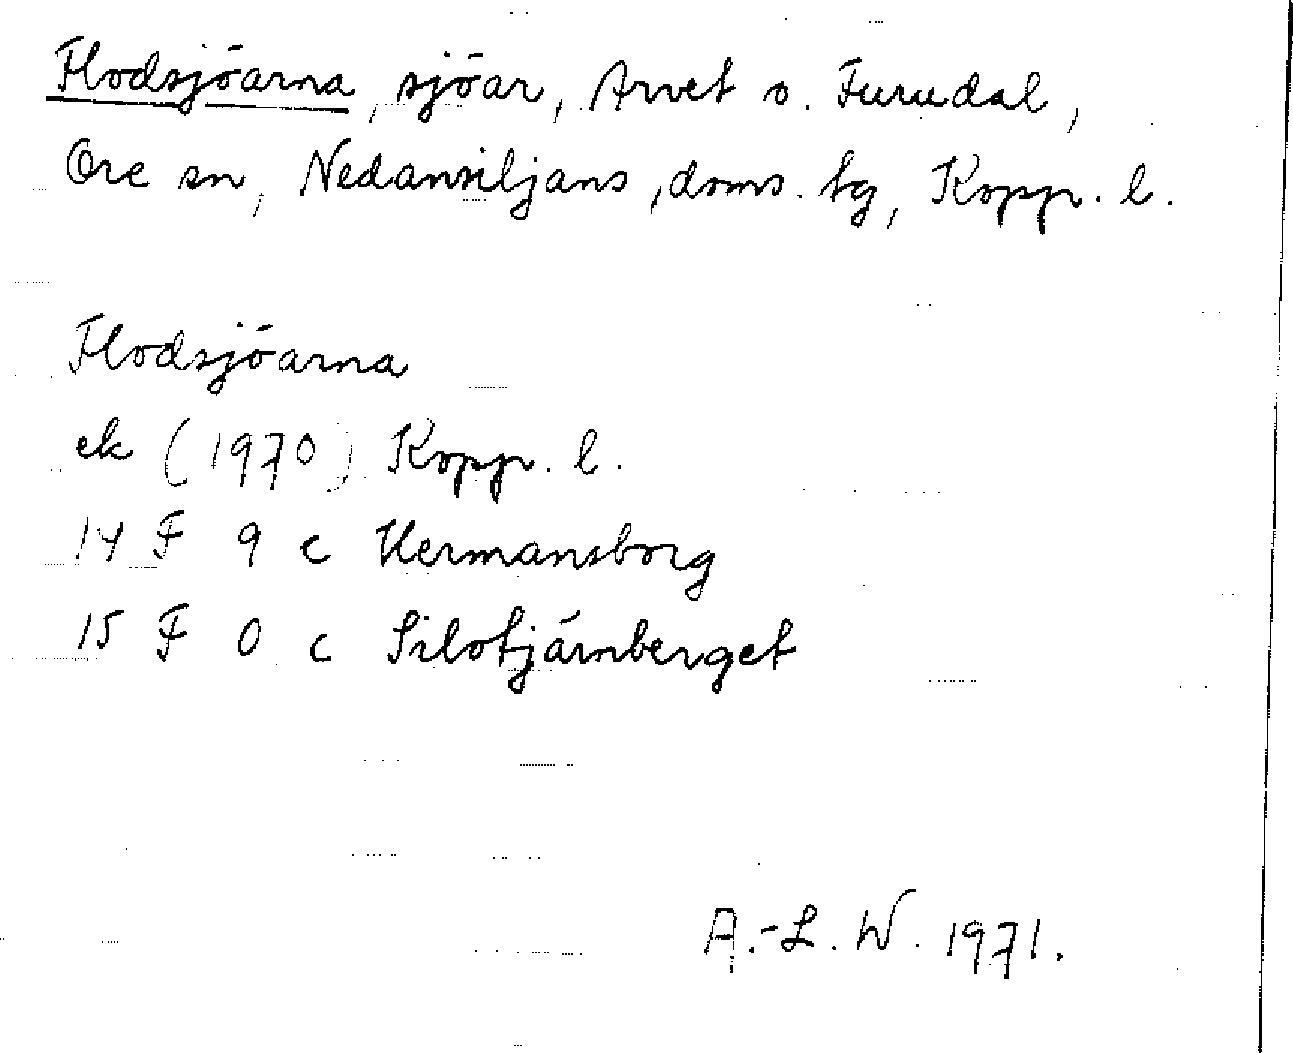 Flodsjöarna, sjöar, Arvet o. Furudal,
Ore sn, Nedansiljans, doms. tg, Kopp. l.
Flodsjöarna
ek (1970) Kopp. l.
14 F 9 c Hermansborg
15 F 0 c Silotjärnberget
A.-L. W. 1971.